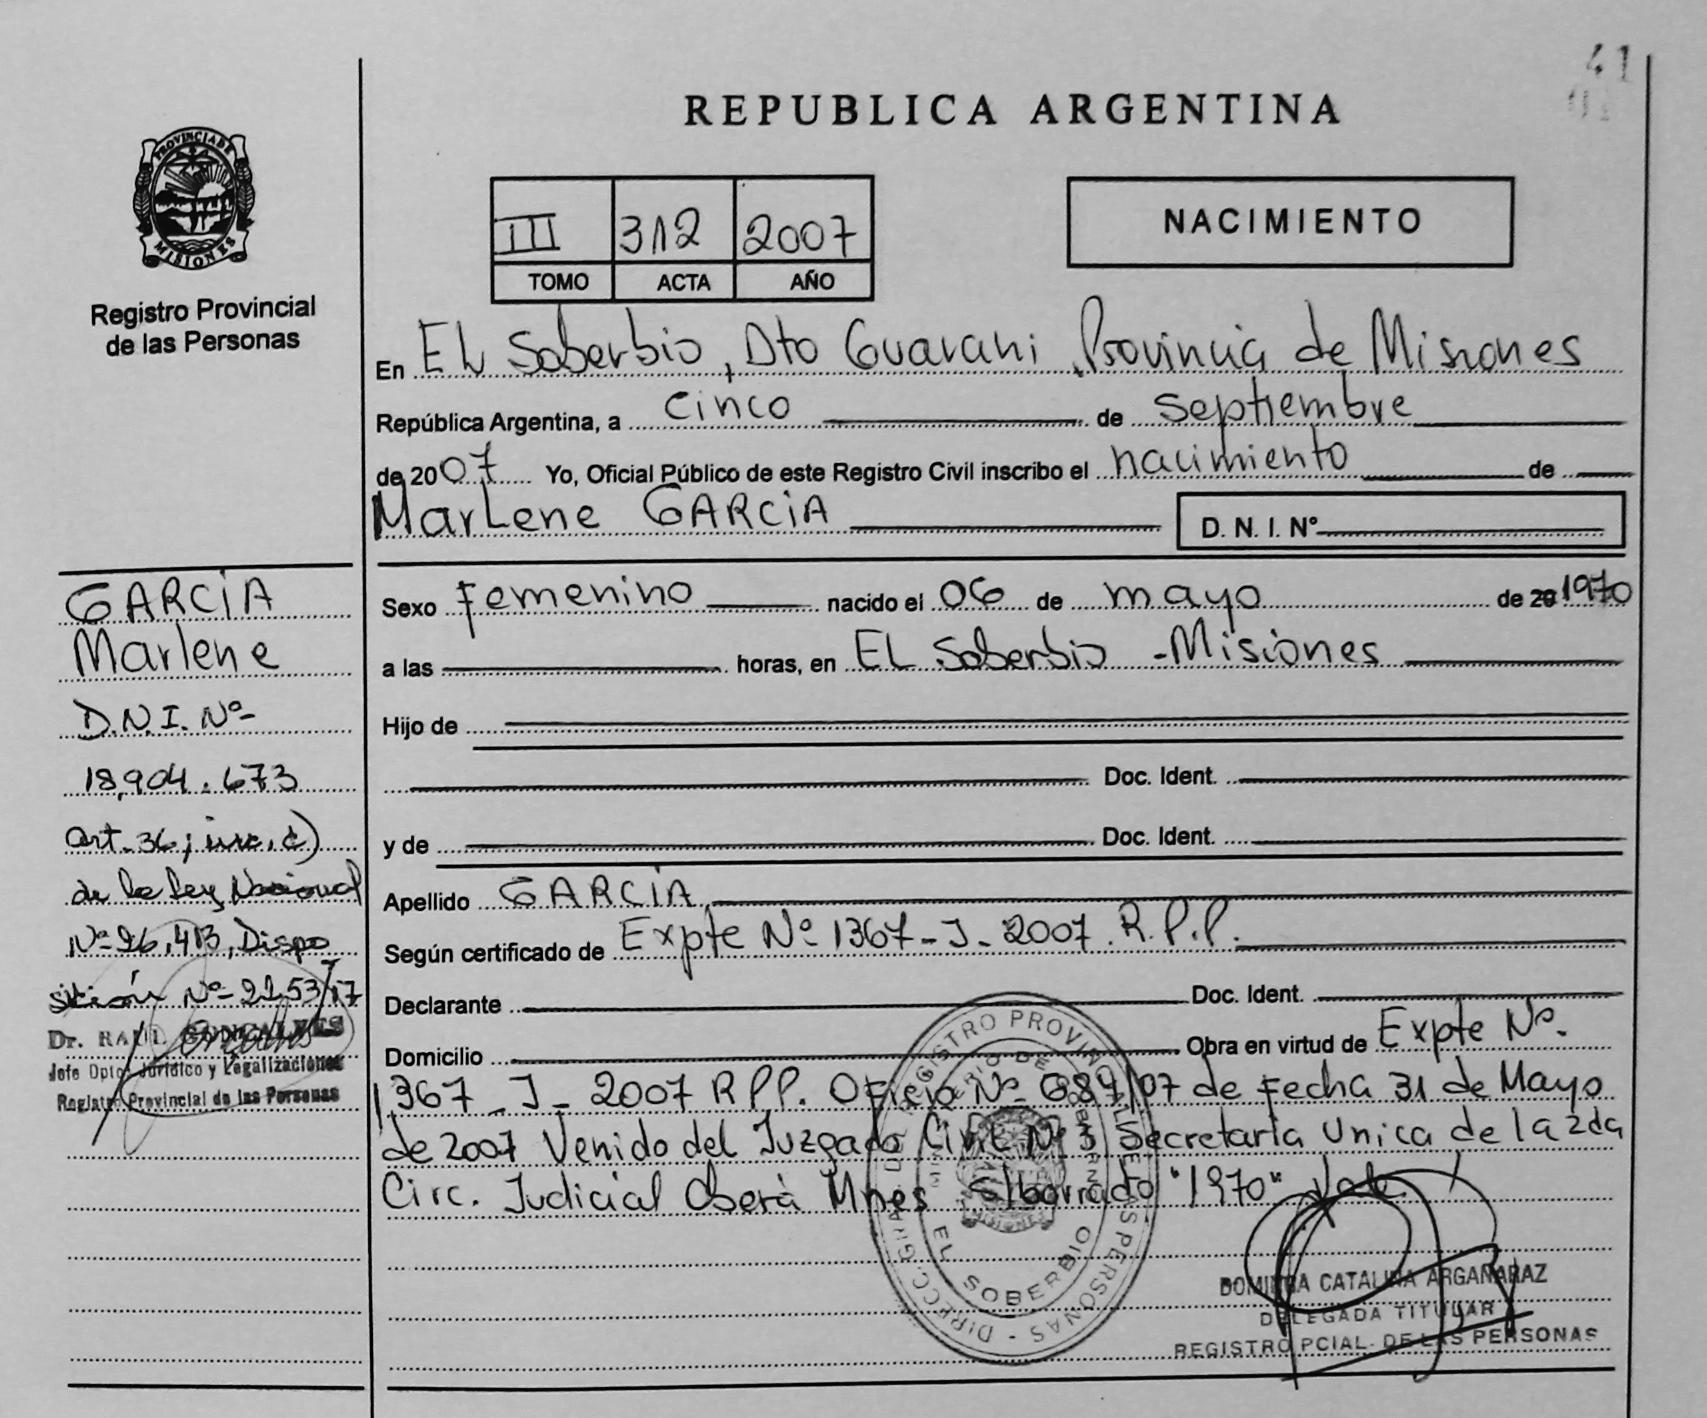 41
REPUBLICA ARGENTINA
PROVINCIA DE
MISIONES
Registro Provincial
de las Personas
III 312 2007
TOMO ACTA AÑO
NACIMIENTO
En EL Soberbio, Dto Guarani, Provincia de Misiones
República Argentina, a cinco de septiembre
de 2007 Yo, Oficial Público de este Registro Civil inscribo el nacimiento de
Marlene GARCIA D. N. I. Nº
Sexo Femenino nacido el 06 de mayo de 20 1970
a las horas, en EL Soberbio - Misiones
Hijo de
Doc. Ident.
y de Doc. Ident.
Apellido GARCIA
Según certificado de Expte Nº 1367-J-2007. R.P.P.
Declarante Doc. Ident.
Domicilio Obra en virtud de Expte Nº.
1367-J-2007 R.P.P. Oficio Nº /07 de Fecha 31 de Mayo
de 2007 Venido del Juzgado Civil Nº 3 Secretaria Unica de la 2da
Circ. Judicial Oberá Mnes S/borrado "1970" Vale
GARCIA
Marlene
D.N.I. Nº
18.904.673
Art. 36, inc. c)
de la Ley Nacional
Nº 26.413, Dispo
sición Nº 2253/17
Dr. RAUL GONCALVES
Jefe Dpto. Jurídico y Legalizaciones
Registro Provincial de las Personas
EL SOBERBIO
MISIONES
DOMINGA CATALINA ARGAÑARAZ
DELEGADA TITULAR
REGISTRO PCIAL. DE LAS PERSONAS